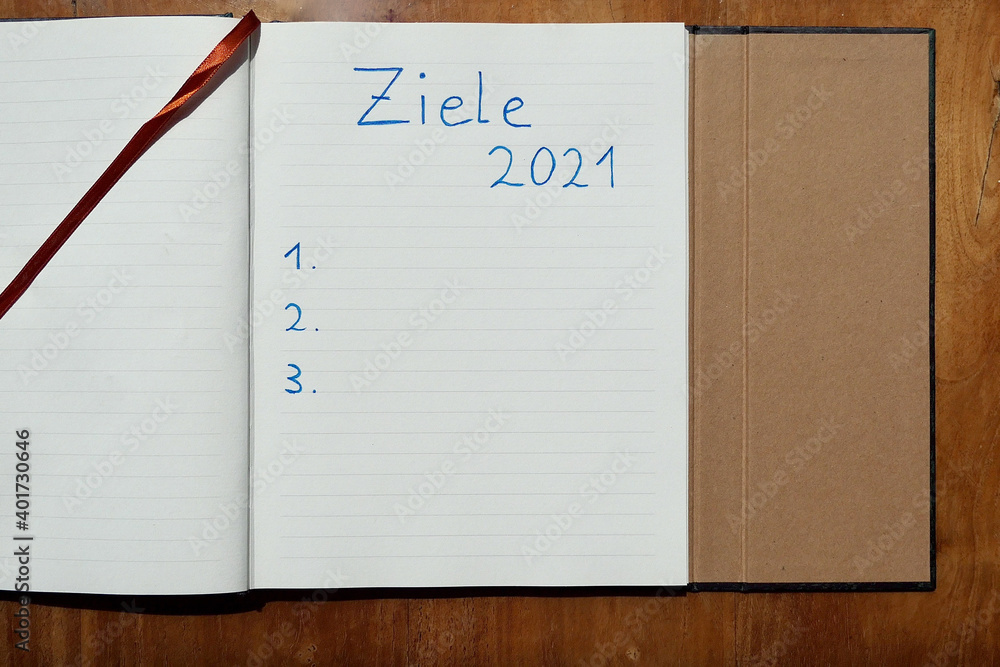 Ziele
2021
1.
2.
3.
Adobe Stock | #401730646